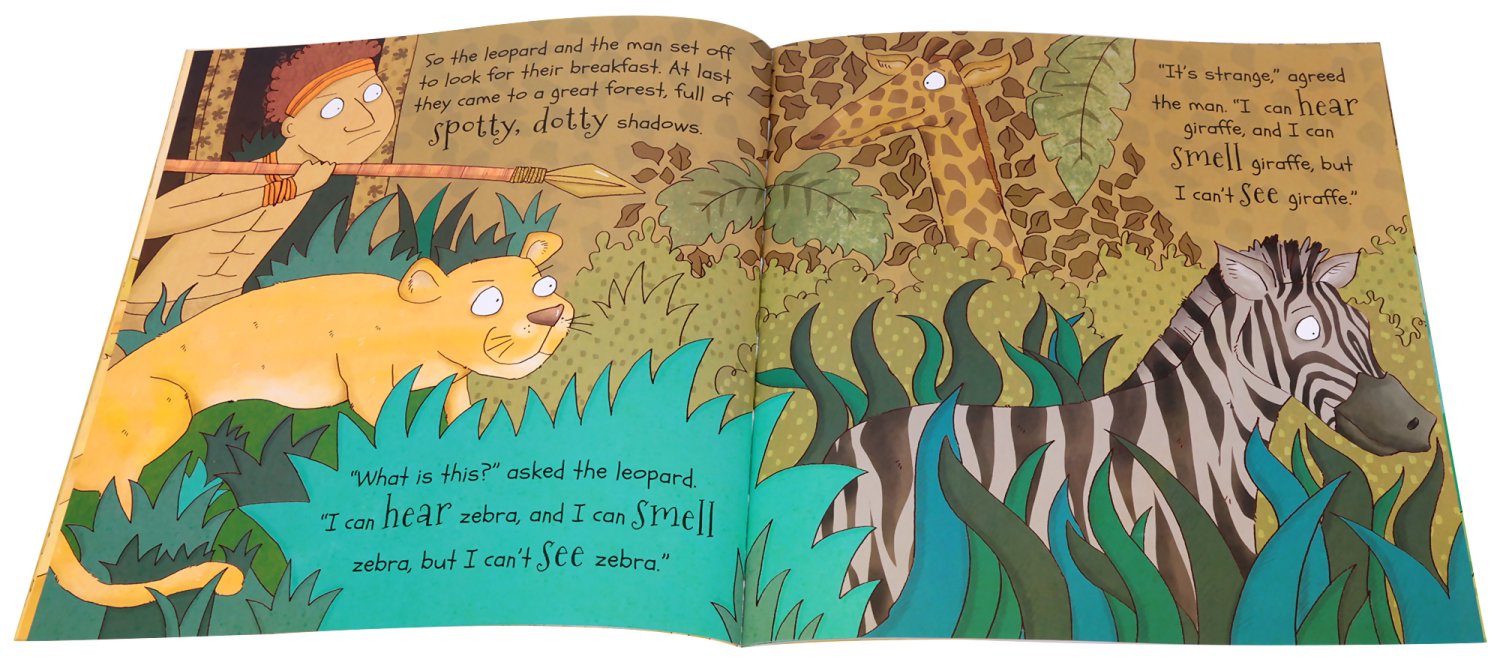 So the leopard and the man set off
to look for their breakfast. At last
they came to a great forest, full of
spotty, dotty shadows.
"What is this?" asked the leopard.
"I can hear zebra, and I can smell
zebra, but I can't see zebra."
"It's strange," agreed
the man. "I can hear
giraffe, and I can
smell giraffe, but
I can't see giraffe."